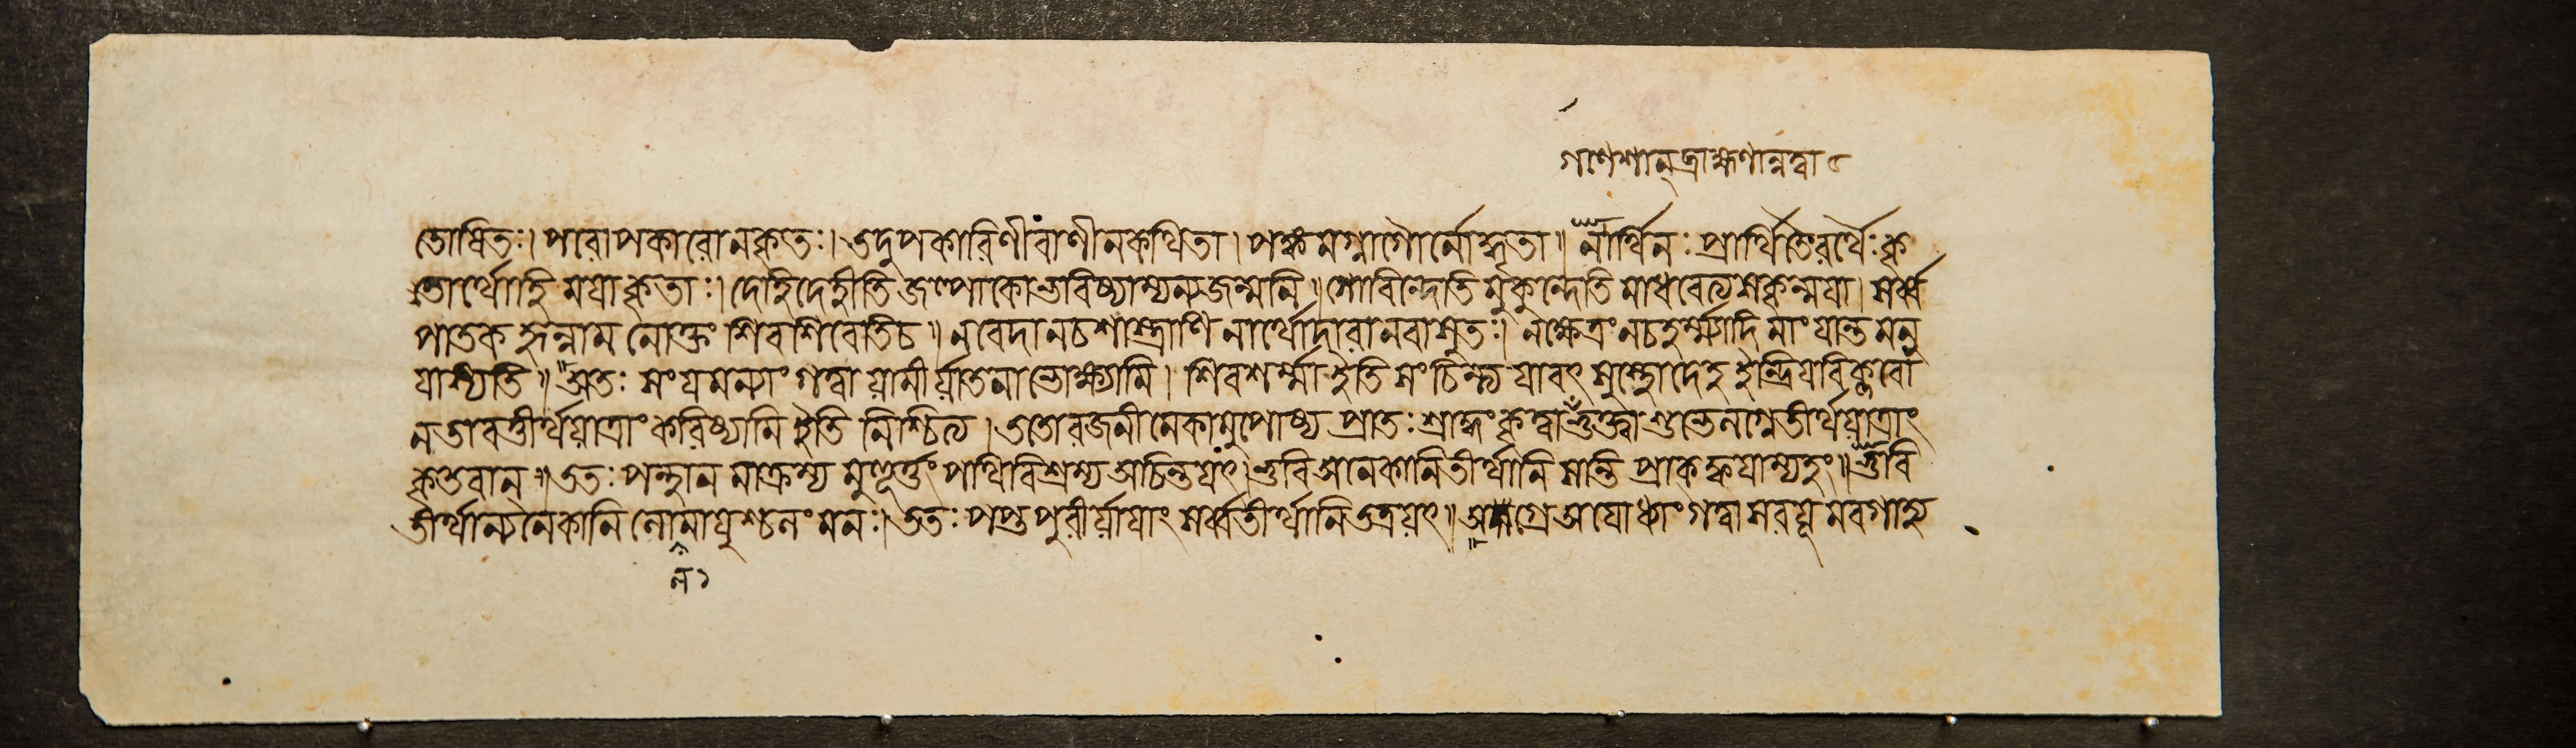 গণেশান্ ব্রাহ্মণান্নত্বা ৫
তোষিতঃ। পরোপকারো ন কৃতঃ। তদুপকারিণী বাণী ন কথিতা। পঙ্কমগ্না গৌর্নোদ্ধৃতা॥ নার্থিনঃ প্রার্থিতৈরর্থৈঃ কৃ
তার্থা হি ময়া কৃতাঃ। দেহি দেহীতি জল্পাকো ভবিষ্যাম্যন্যজন্মনি॥ গোবিন্দেতি মুকুন্দেতি মাধবেত্যসকৃন্ময়া। সর্ব্ব
পাতকহৃন্নাম নোক্তং শিবশিবেতি চ॥ ন বেদা ন চ শাস্ত্রাণি নার্থো দারা ন বা সুতঃ। ন ক্ষেত্রং ন চ হর্ম্ম্যাদি মাং যান্তমনু
যাস্যতি॥ অতঃ সংযমন্যাং গত্বা যামীর্যাতনা ভোক্ষ্যামি। শিবশর্ম্মা ইতি সংচিন্ত্য যাবৎ সুস্থো দেহ ইন্দ্রিয়বিক্লবো
ন তাবত্তীর্থযাত্রাং করিষ্যামি ইতি নিশ্চিত্য। ততো রজনীমেকামুপোষ্য প্রাতঃ শ্রাদ্ধং কৃত্বা ভুক্ত্বা শুভেলগ্নে তীর্থযাত্রাং
কৃতবান্॥ ততঃ পন্থানমাক্রম্য মুহূর্ত্তং পথি বিশ্রম্য অচিন্তয়ৎ। ভুবি অনেকানি তীর্থানি সন্তি প্রাক্ ক্ব যাম্যহং॥ ভুবি
তীর্থান্যনেকানি লোলমায়ুশ্চলং মনঃ। ততঃ সপ্তপুরীর্যায়াং সর্ব্বতীর্থানি তত্র যৎ॥ অগ্রে অযোধ্যাং গত্বা সরযূমবগাহ্য
ল ২